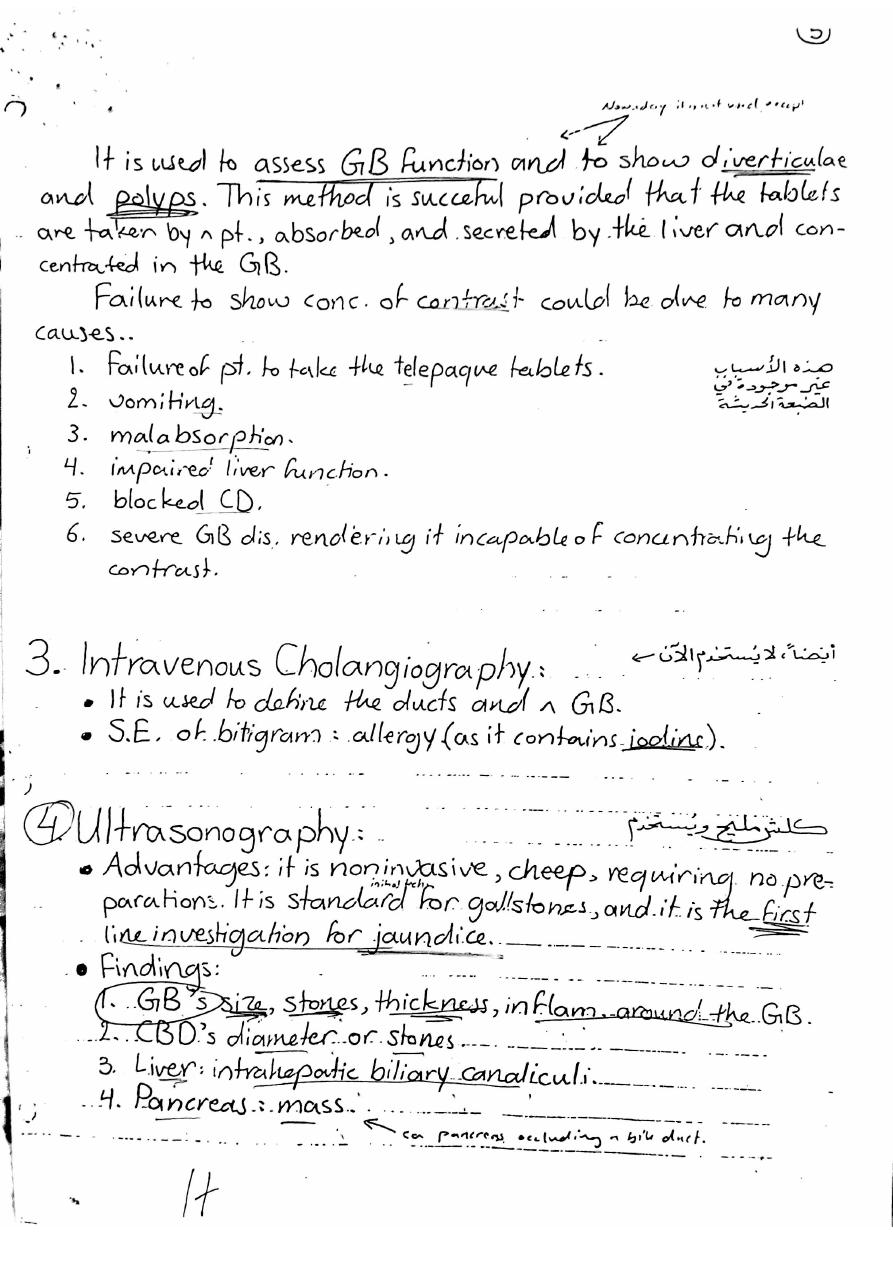 5
Nowaday it is not used except
It is used to assess GB function and to show diverticulae
and polyps. This method is succeful provided that the tablets
are taken by ^ pt., absorbed, and secreted by the liver and con-
centrated in the GB.
Failure to show conc. of contrast could be due to many
causes..
1. Failure of pt. to take the telepaque tablets.
هذه الأسباب
غير موجودة في
الطبعة الحديثة
2. vomiting.
3. malabsorption.
4. impaired liver function.
5. blocked CD.
6. severe GB dis. rendering it incapable of concentrating the
contrast.
3. Intravenous Cholangiography:
أيضاً، لا يُستخدم الآن
• It is used to define the ducts and ^ GB.
• S.E. of bitigram: allergy (as it contains iodine).
4 Ultrasonography:
كلش مليح ويُستخدم
• Advantages: it is noninvasive, cheep, requiring no pre-
parations. It is standard initial for gallstones, and it is the first
line investigation for jaundice.
• Findings:
1. GB's size, stones, thickness, inflam. around the GB.
2. CBD's diameter or stones.
3. Liver: intrahepatic biliary canaliculi.
4. Pancreas: mass.
ca pancreas occluding ^ bile duct.